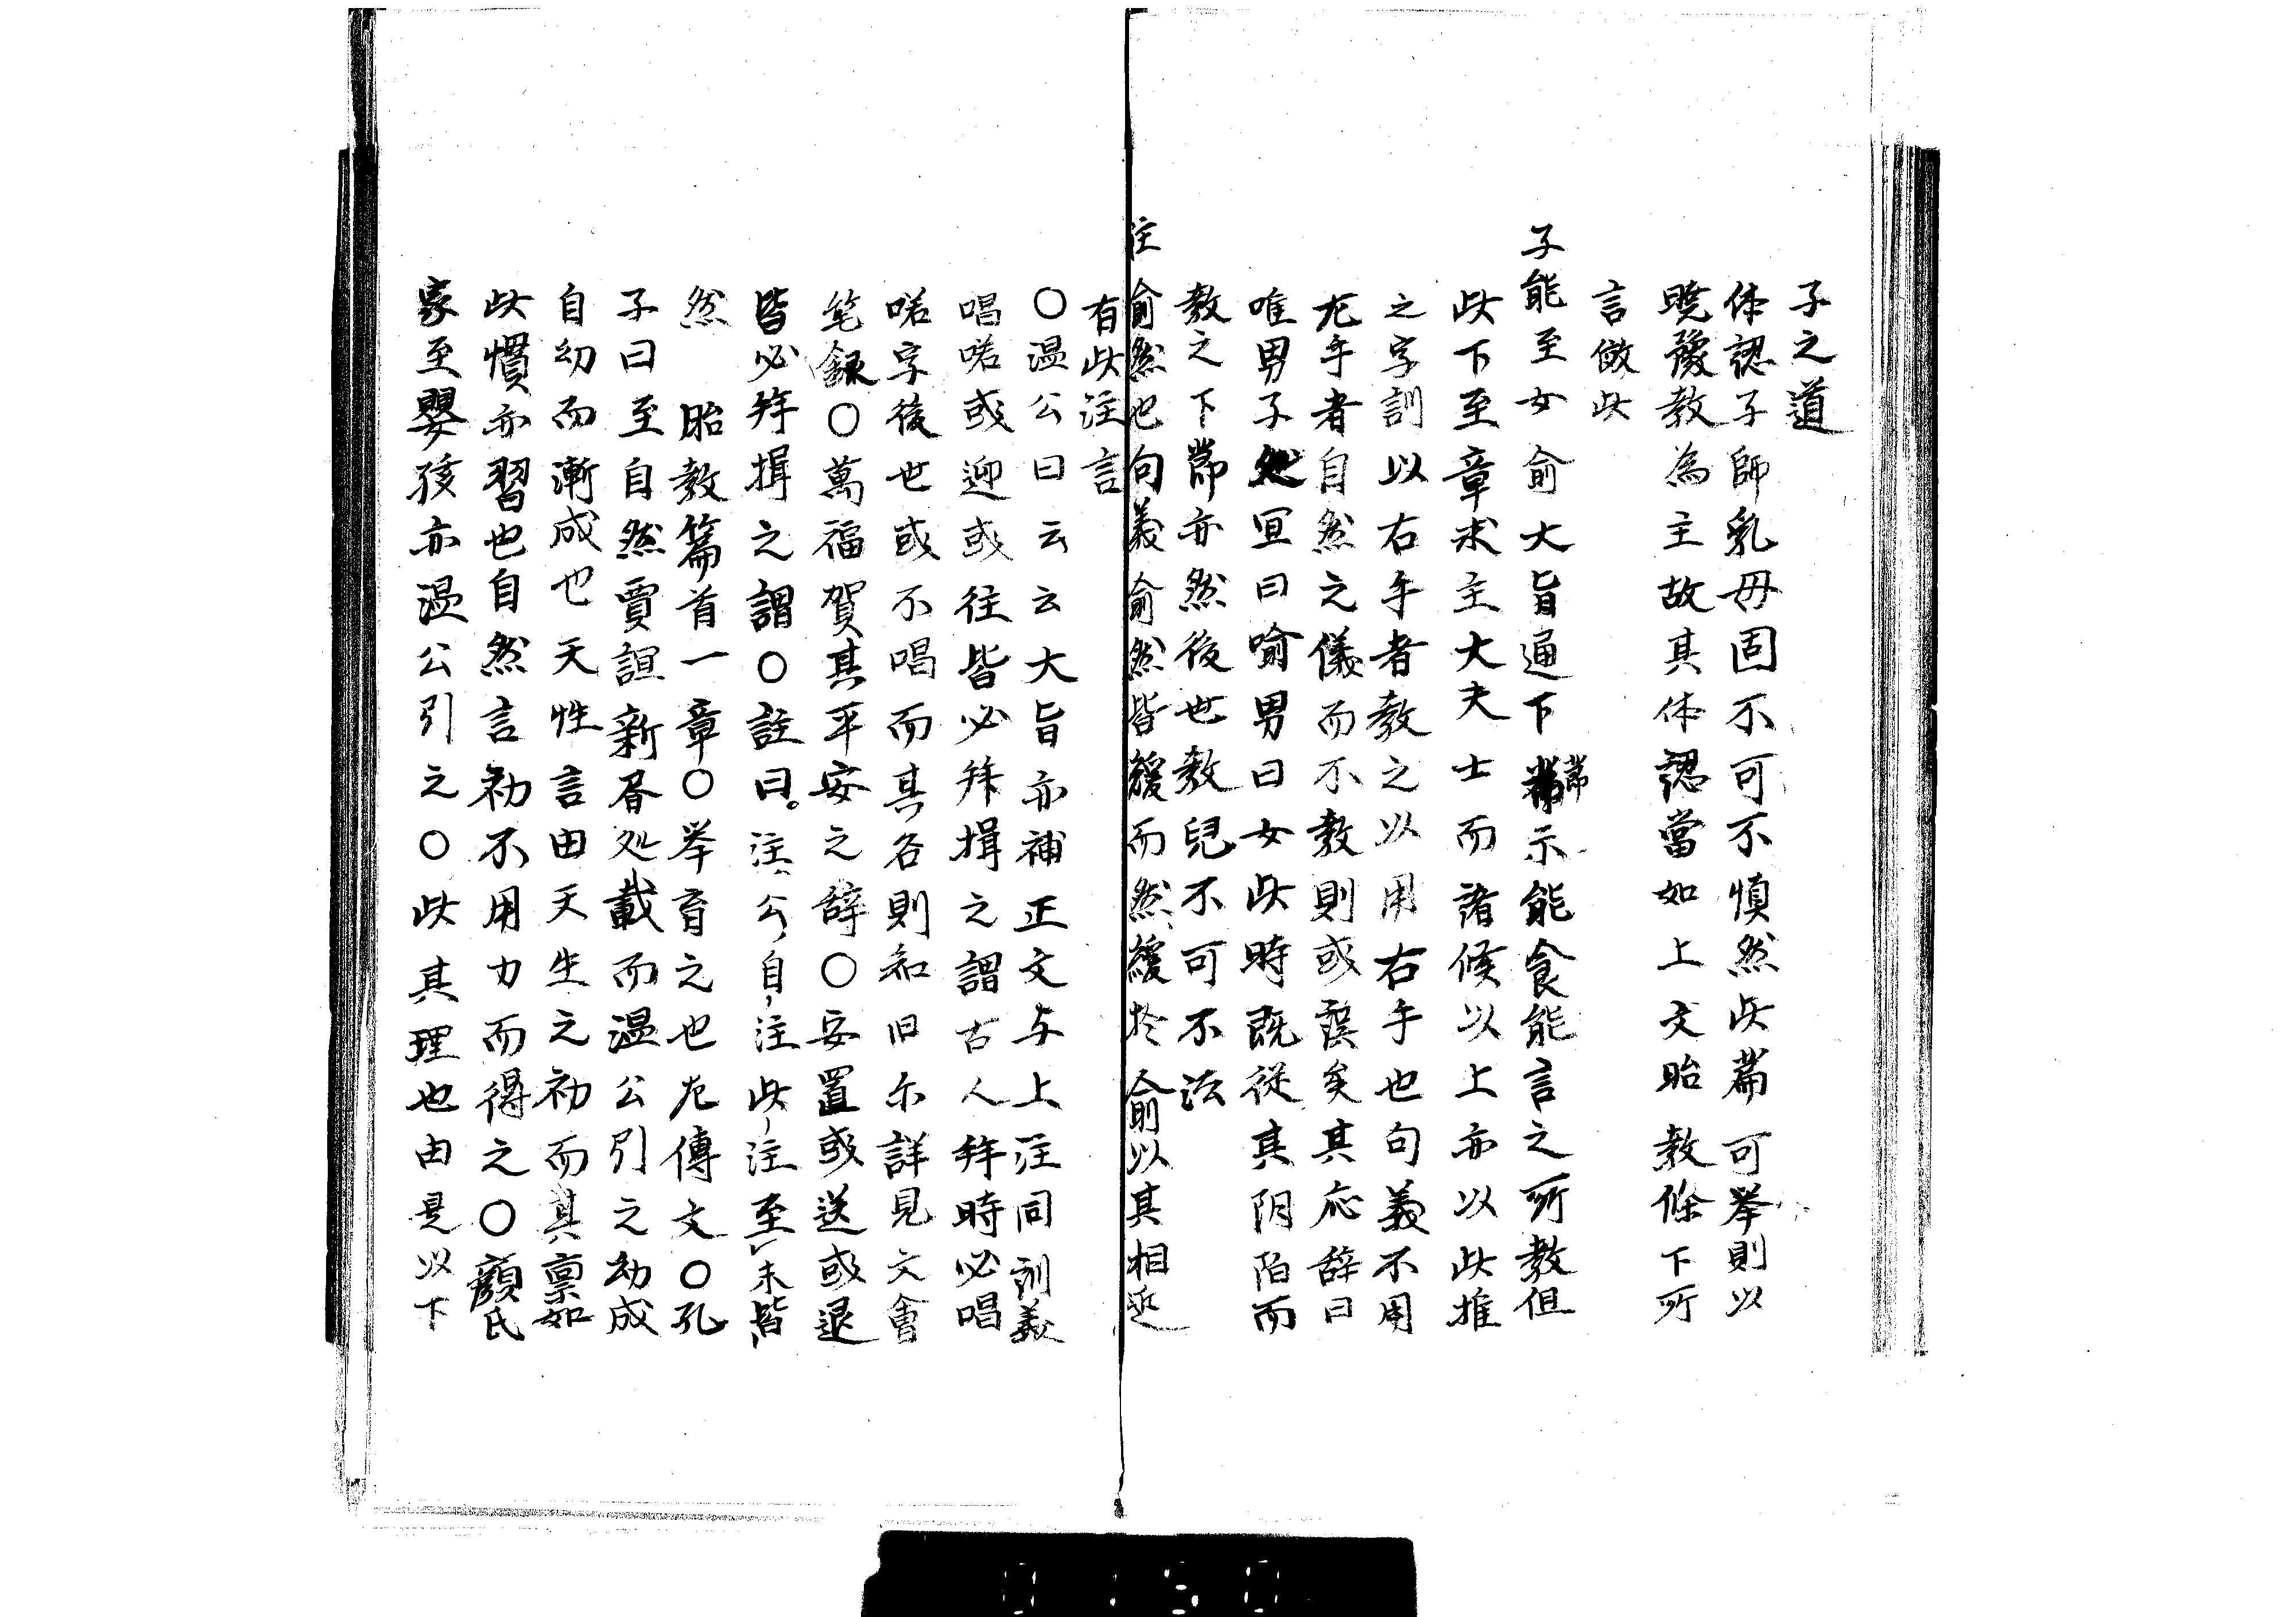 子之道
体認子師乳母固不可不慎然此篇可挙則以
曉豫教為主故其体認當如上文胎教條下所
言倣此
子能至女俞大旨通下節示能食能言之所教但
此下至章末主大夫士而諸侯以上亦以此推
之字訓以右手者教之以用右手也句義不用
左手者自然之儀而不教則或誤矣其応辞曰
唯男子処宜曰喻男曰女此時既從其阴陌而
教之下節亦然後世教兒不可不法
注俞然也句義俞然皆緩而然緩於俞以其相近
有此注言
〇温公曰云云大旨亦補正文与上注同訓義
唱喏或迎或往皆必拜揖之謂古人拜時必唱
喏字後世或不唱而其名則和旧尓詳見文會
笔録〇萬福賀其平安之辞〇安置或送或退
皆必拜揖之謂〇註曰注公自注此注至末皆
然　胎教篇首一章〇挙育之也左傳文〇孔
子曰至自然賈誼新書処載而温公引之幼成
自幼而漸成也天性言由天生之初而其稟如
此慣亦習也自然言初不用力而得之〇顔氏
家至嬰孩亦温公引之〇此其理也由是以下